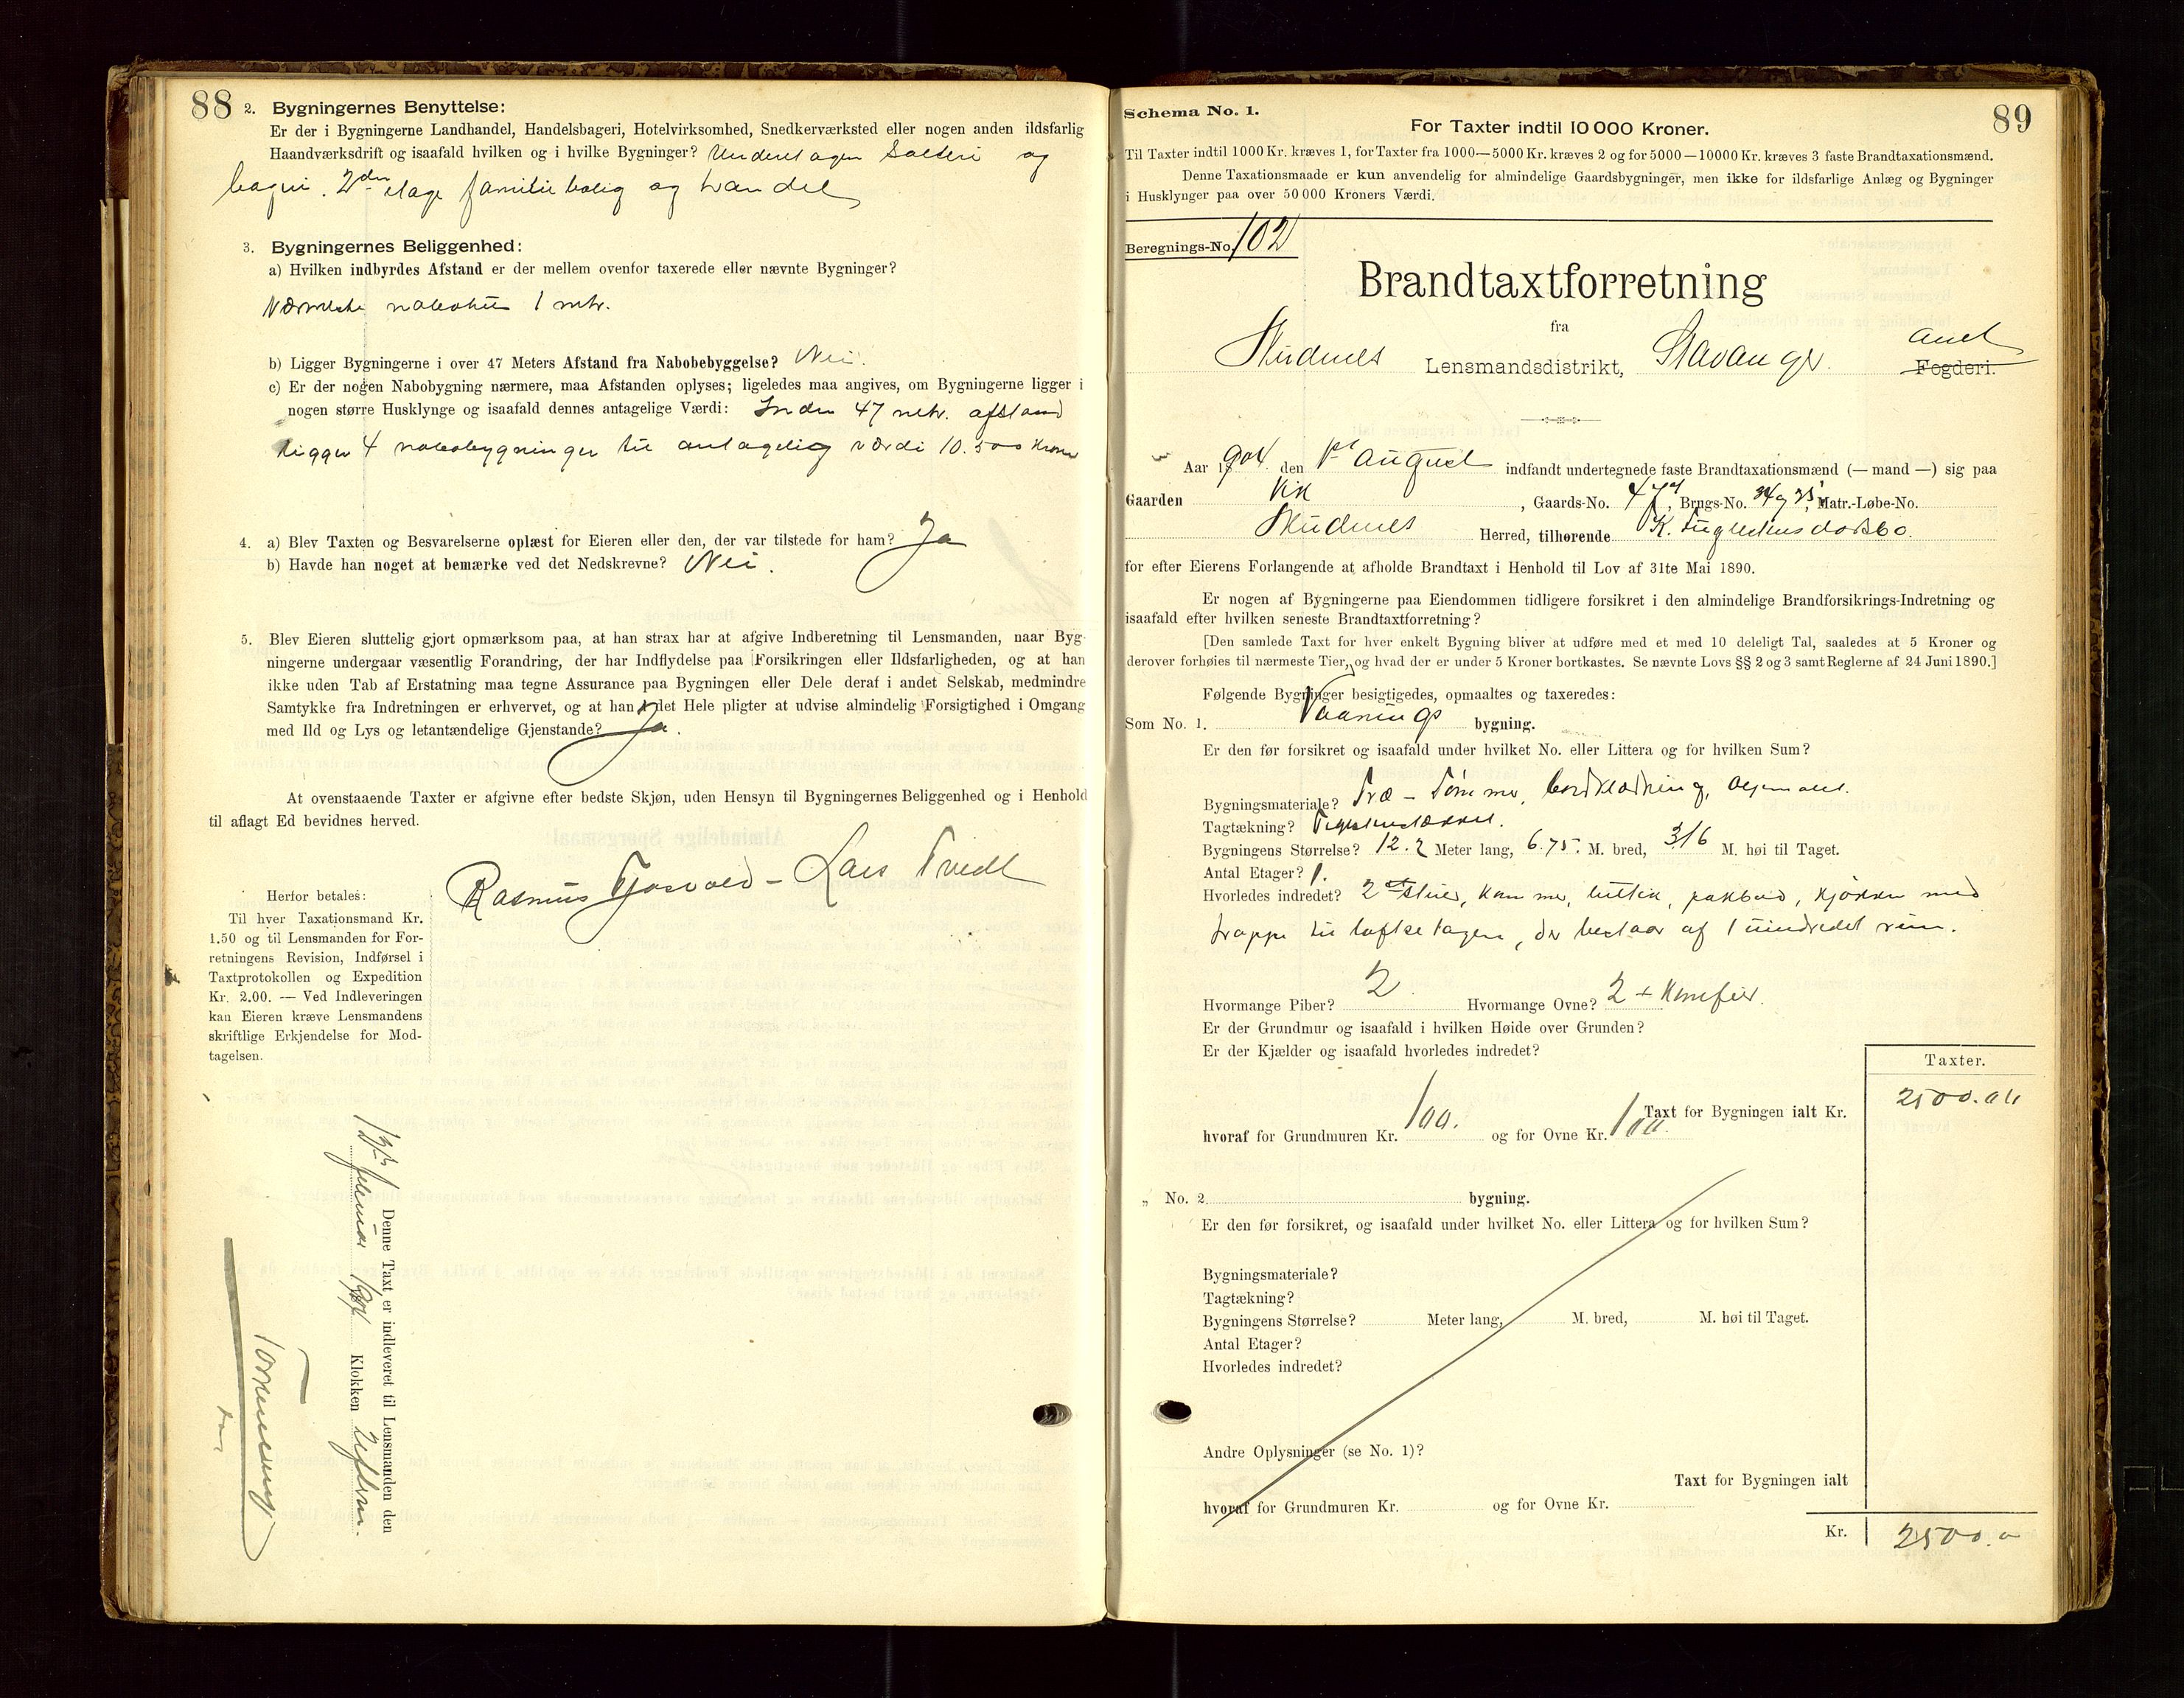 88
2. Bygningernes Benyttelse:
Er der i Bygningerne Landhandel, Handelsbageri, Hotelvirksomhed, Snedkerværksted eller nogen anden ildsfarlig
Haandværksdrift og isaafald hvilken og i hvilke Bygninger? Underetagen Salteri og
bageri. 2den etage familiebolig og handel
3. Bygningernes Beliggenhed:
a) Hvilken indbyrdes Afstand er der mellem ovenfor taxerede eller nævnte Bygninger?
Nærmeste nabohus 1 mtr.
b) Ligger Bygningerne i over 47 Meters Afstand fra Nabobebyggelse? Nei.
c) Er der nogen Nabobygning nærmere, maa Afstanden oplyses; ligeledes maa angives, om Bygningerne ligger i
nogen større Husklynge og isaafald dennes antagelige Værdi: Inden 47 mtr. afstand
ligger 4 nabobygninger til antagelig værdi 10.500 Kroner
4. a) Blev Taxten og Besvarelserne oplæst for Eieren eller den, der var tilstede for ham? Ja
b) Havde han noget at bemærke ved det Nedskrevne? Nei.
5. Blev Eieren sluttelig gjort opmærksom paa, at han strax har at afgive Indberetning til Lensmanden, naar Byg-
ningerne undergaar væsentlig Forandring, der har Indflydelse paa Forsikringen eller Ildsfarligheden, og at han
ikke uden Tab af Erstatning maa tegne Assurance paa Bygningen eller Dele deraf i andet Selskab, medmindre
Samtykke fra Indretningen er erhvervet, og at han i det Hele pligter at udvise almindelig Forsigtighed i Omgang
med Ild og Lys og letantændelige Gjenstande? Ja.
At ovenstaaende Taxter er afgivne efter bedste Skjøn, uden Hensyn til Bygningernes Beliggenhed og i Henhold
til aflagt Ed bevidnes herved.
Rasmus Tjosvold – Lars Tvedt
Herfor betales:
Til hver Taxationsmand Kr.
1.50 og til Lensmanden for For-
retningens Revision, Indførsel i
Taxtprotokollen og Expedition
Kr. 2.00. — Ved Indleveringen
kan Eieren kræve Lensmandens
skriftlige Erkjendelse for Mod-
tagelsen.
Denne Taxt er indleveret til Lensmanden den
Klokken
89
Schema No. 1.
For Taxter indtil 10 000 Kroner.
Til Taxter indtil 1000 Kr. kræves 1, for Taxter fra 1000—5000 Kr. kræves 2 og for 5000—10000 Kr. kræves 3 faste Brandtaxationsmænd.
Denne Taxationsmaade er kun anvendelig for almindelige Gaardsbygninger, men ikke for ildsfarlige Anlæg og Bygninger
i Husklynger paa over 50 000 Kroners Værdi.
Beregnings-No. 102
Brandtaxtforretning
fra
Skudenes Lensmandsdistrikt, Stavanger Amt Fogderi.
Aar 1904 den 1st August indfandt undertegnede faste Brandtaxationsmænd (— mand —) sig paa
Gaarden Vik, Gaards-No. 47, Brugs-No. 34 og 35, Matr.-Løbe-No.
Skudenes Herred, tilhørende K.
for efter Eierens Forlangende at afholde Brandtaxt i Henhold til Lov af 31te Mai 1890.
Er nogen af Bygningerne paa Eiendommen tidligere forsikret i den almindelige Brandforsikrings-Indretning og
isaafald efter hvilken seneste Brandtaxtforretning?
[Den samlede Taxt for hver enkelt Bygning bliver at udføre med et med 10 deleligt Tal, saaledes at 5 Kroner og
derover forhøies til nærmeste Tier, og hvad der er under 5 Kroner bortkastes. Se nævnte Lovs §§ 2 og 3 samt Reglerne af 24 Juni 1890.]
Følgende Bygninger besigtigedes, opmaaltes og taxeredes:
Som No. 1. Vaanings bygning.
Er den før forsikret og isaafald under hvilket No. eller Littera og for hvilken Sum?
Bygningsmateriale? Træ – Tømmer, bordklædning, oljemalet.
Tagtækning? Teglstenstækket.
Bygningens Størrelse? 12.2 Meter lang, 6.75. M. bred, 3/6 M. høi til Taget.
Antal Etager? 1.
Hvorledes indredet? 2 stuer, kammer, buttik, pakbod, kjøkken med
trappe til loftsetagen, der bestaar af 1 uindredet rum.
Hvormange Piber? 2. Hvormange Ovne? 2 + Komfur.
Er der Grundmur og isaafald i hvilken Høide over Grunden?
Er der Kjælder og isaafald hvorledes indredet?
Taxter.
Taxt for Bygningen ialt Kr. 2500.00
hvoraf for Grundmuren Kr. 100. og for Ovne Kr. 100.
„ No. 2. bygning.
Er den før forsikret, og isaafald under hvilket No. eller Littera og for hvilken Sum?
Bygningsmateriale?
Tagtækning?
Bygningens Størrelse? Meter lang, M. bred, M. høi til Taget.
Antal Etager?
Hvorledes indredet?
Andre Oplysninger (se No. 1)?
Taxt for Bygningen ialt
hvoraf for Grundmuren Kr. og for Ovne Kr.
Kr. 2500.